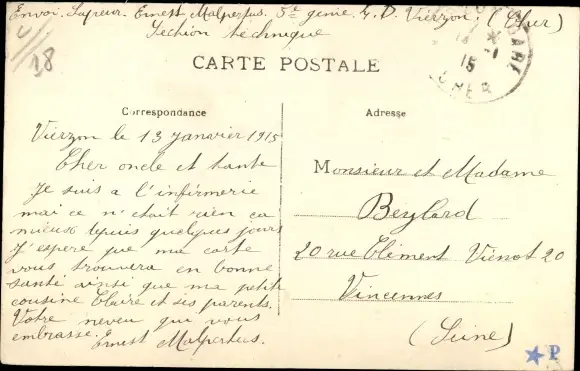 Envoi. Sapeur. Ernest Malpertus. 5e genie. G. D. Vierzon. (Cher)
Section technique
18
CARTE POSTALE
Correspondance
Adresse
Vierzon le 13 Janvier 1915
Cher oncle et tante
Je suis a l'infirmerie
mai ce n'etait rien ça
mieux depuis quelques jours
J'espere que ma carte
vous trouvera en bonne
santé ainsi que ma petite
cousine Claire et ses parents.
Votre neveu qui vous
embrasse.
Ernest Malpertus.
Monsieur et Madame
Beylard
20 rue Clément Viénot 20
Vincennes
(Seine)
GARE
15
CHER
P